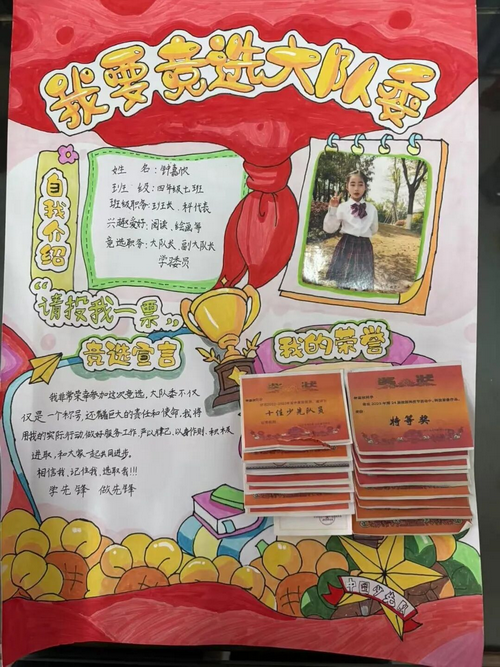 我要竞选大队委
自我介绍
姓 名：
班 级：四年级七班
班级职务：班长、科代表
兴趣爱好：阅读、绘画等
竞选职务：大队长、副大队长
学委员
“请投我一票”
竞选宣言
我非常荣幸参加这次竞选，大队委不仅
仅是一个称号，还有巨大的责任和使命，我将
用我的实际行动，做好服务工作，严以律己，以身作则，积极
进取，和大家一起共同进步。
相信我，记住我，选取我!!!
学先锋 做先锋
我的荣誉
奖状
十佳少先队员
奖状
特等奖
中国少先队